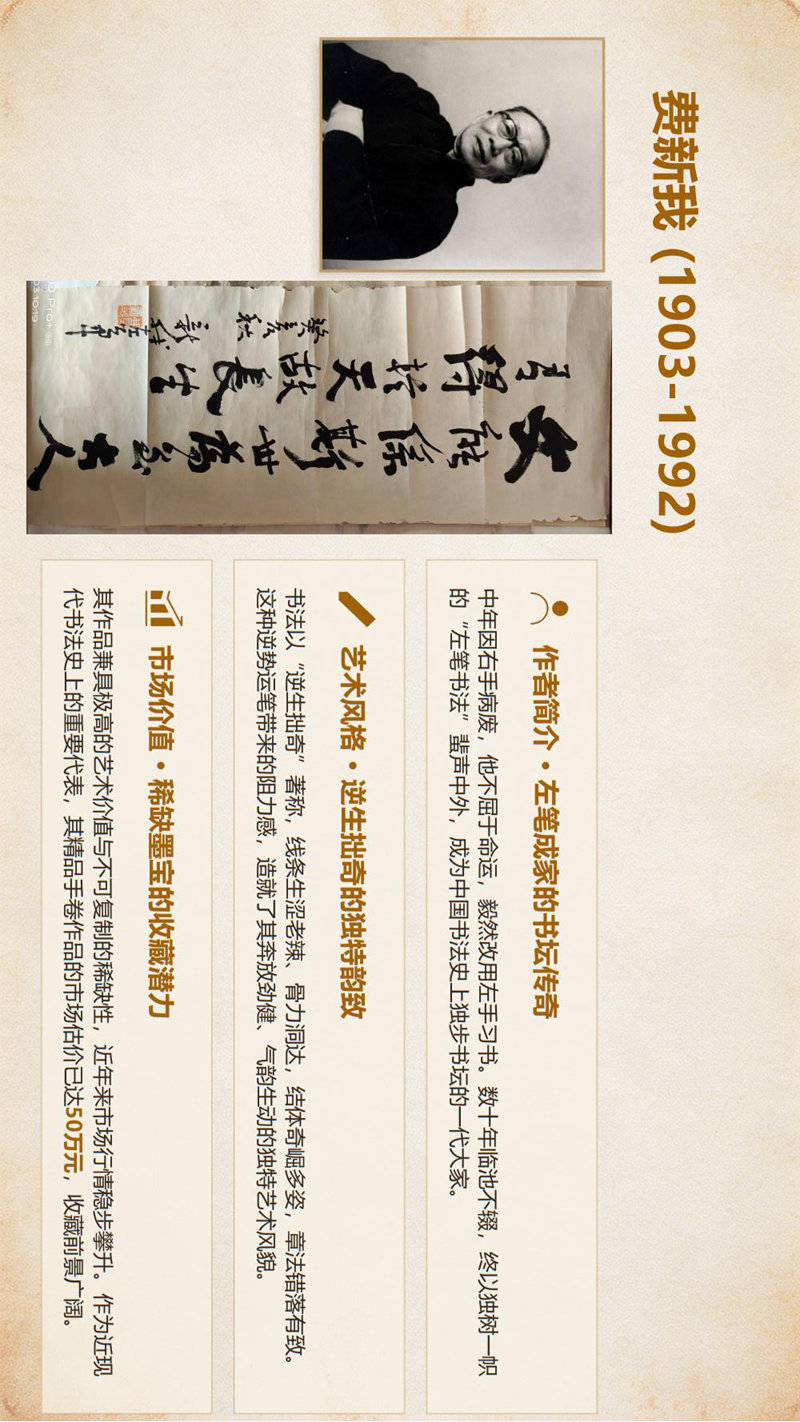 费新我 (1903-1992)
癸亥秋
新我左笔
10:19
作者简介·左笔成家的书坛传奇
中年因右手病废，他不屈于命运，毅然改用左手习书。数十年临池不辍，终以独树一帜
的“左笔书法”蜚声中外，成为中国书法史上独步书坛的一代大家。
艺术风格·逆生拙奇的独特韵致
书法以“逆生拙奇”著称，线条生涩老辣、骨力洞达，结体奇崛多姿，章法错落有致。
这种逆势运笔带来的阻力感，造就了其奔放劲健、气韵生动的独特艺术风貌。
市场价值·稀缺墨宝的收藏潜力
其作品兼具极高的艺术价值与不可复制的稀缺性，近年来市场行情稳步攀升。作为近现
代书法史上的重要代表，其精品手卷作品的市场估价已达50万元，收藏前景广阔。